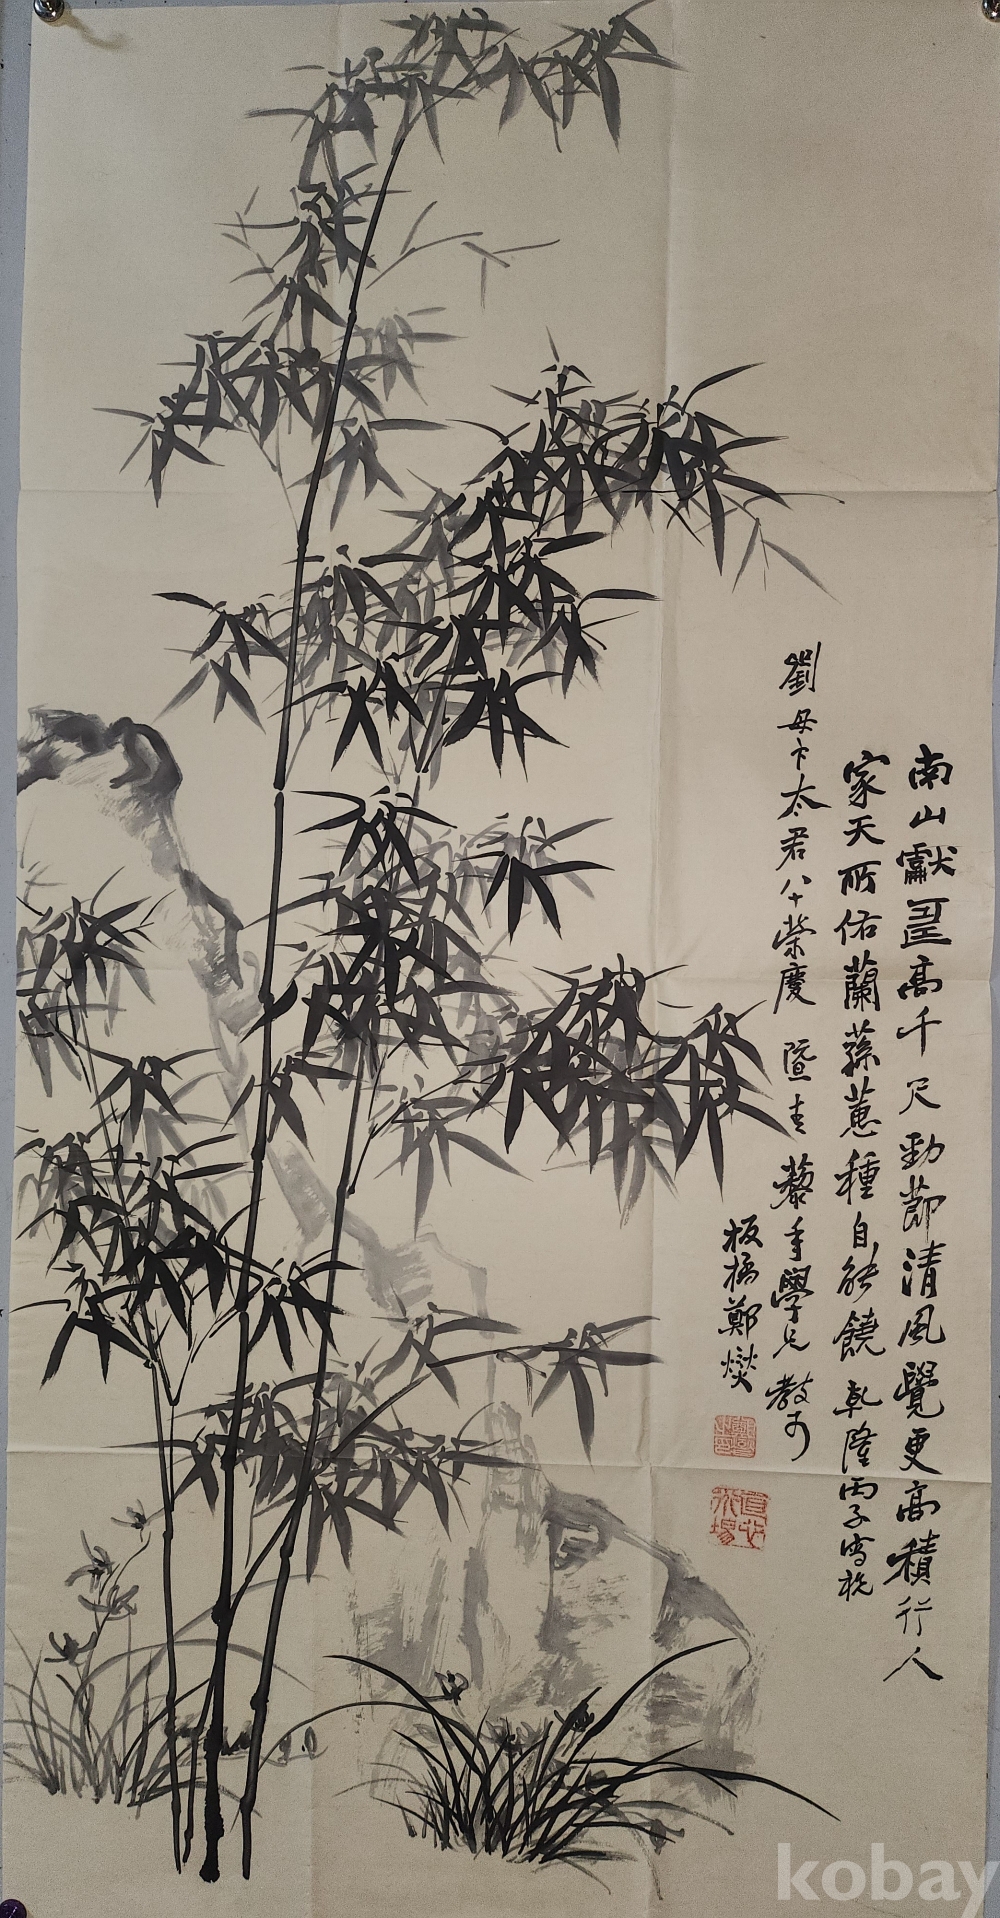 南山獻壽高千尺勁節清風覺更高積行人
家天所佑蘭蓀蕙種自能饒 乾隆丙子寫祝
劉母卞太君八十榮慶 暨 青藜年學兄 教可
板橋鄭燮
kobay